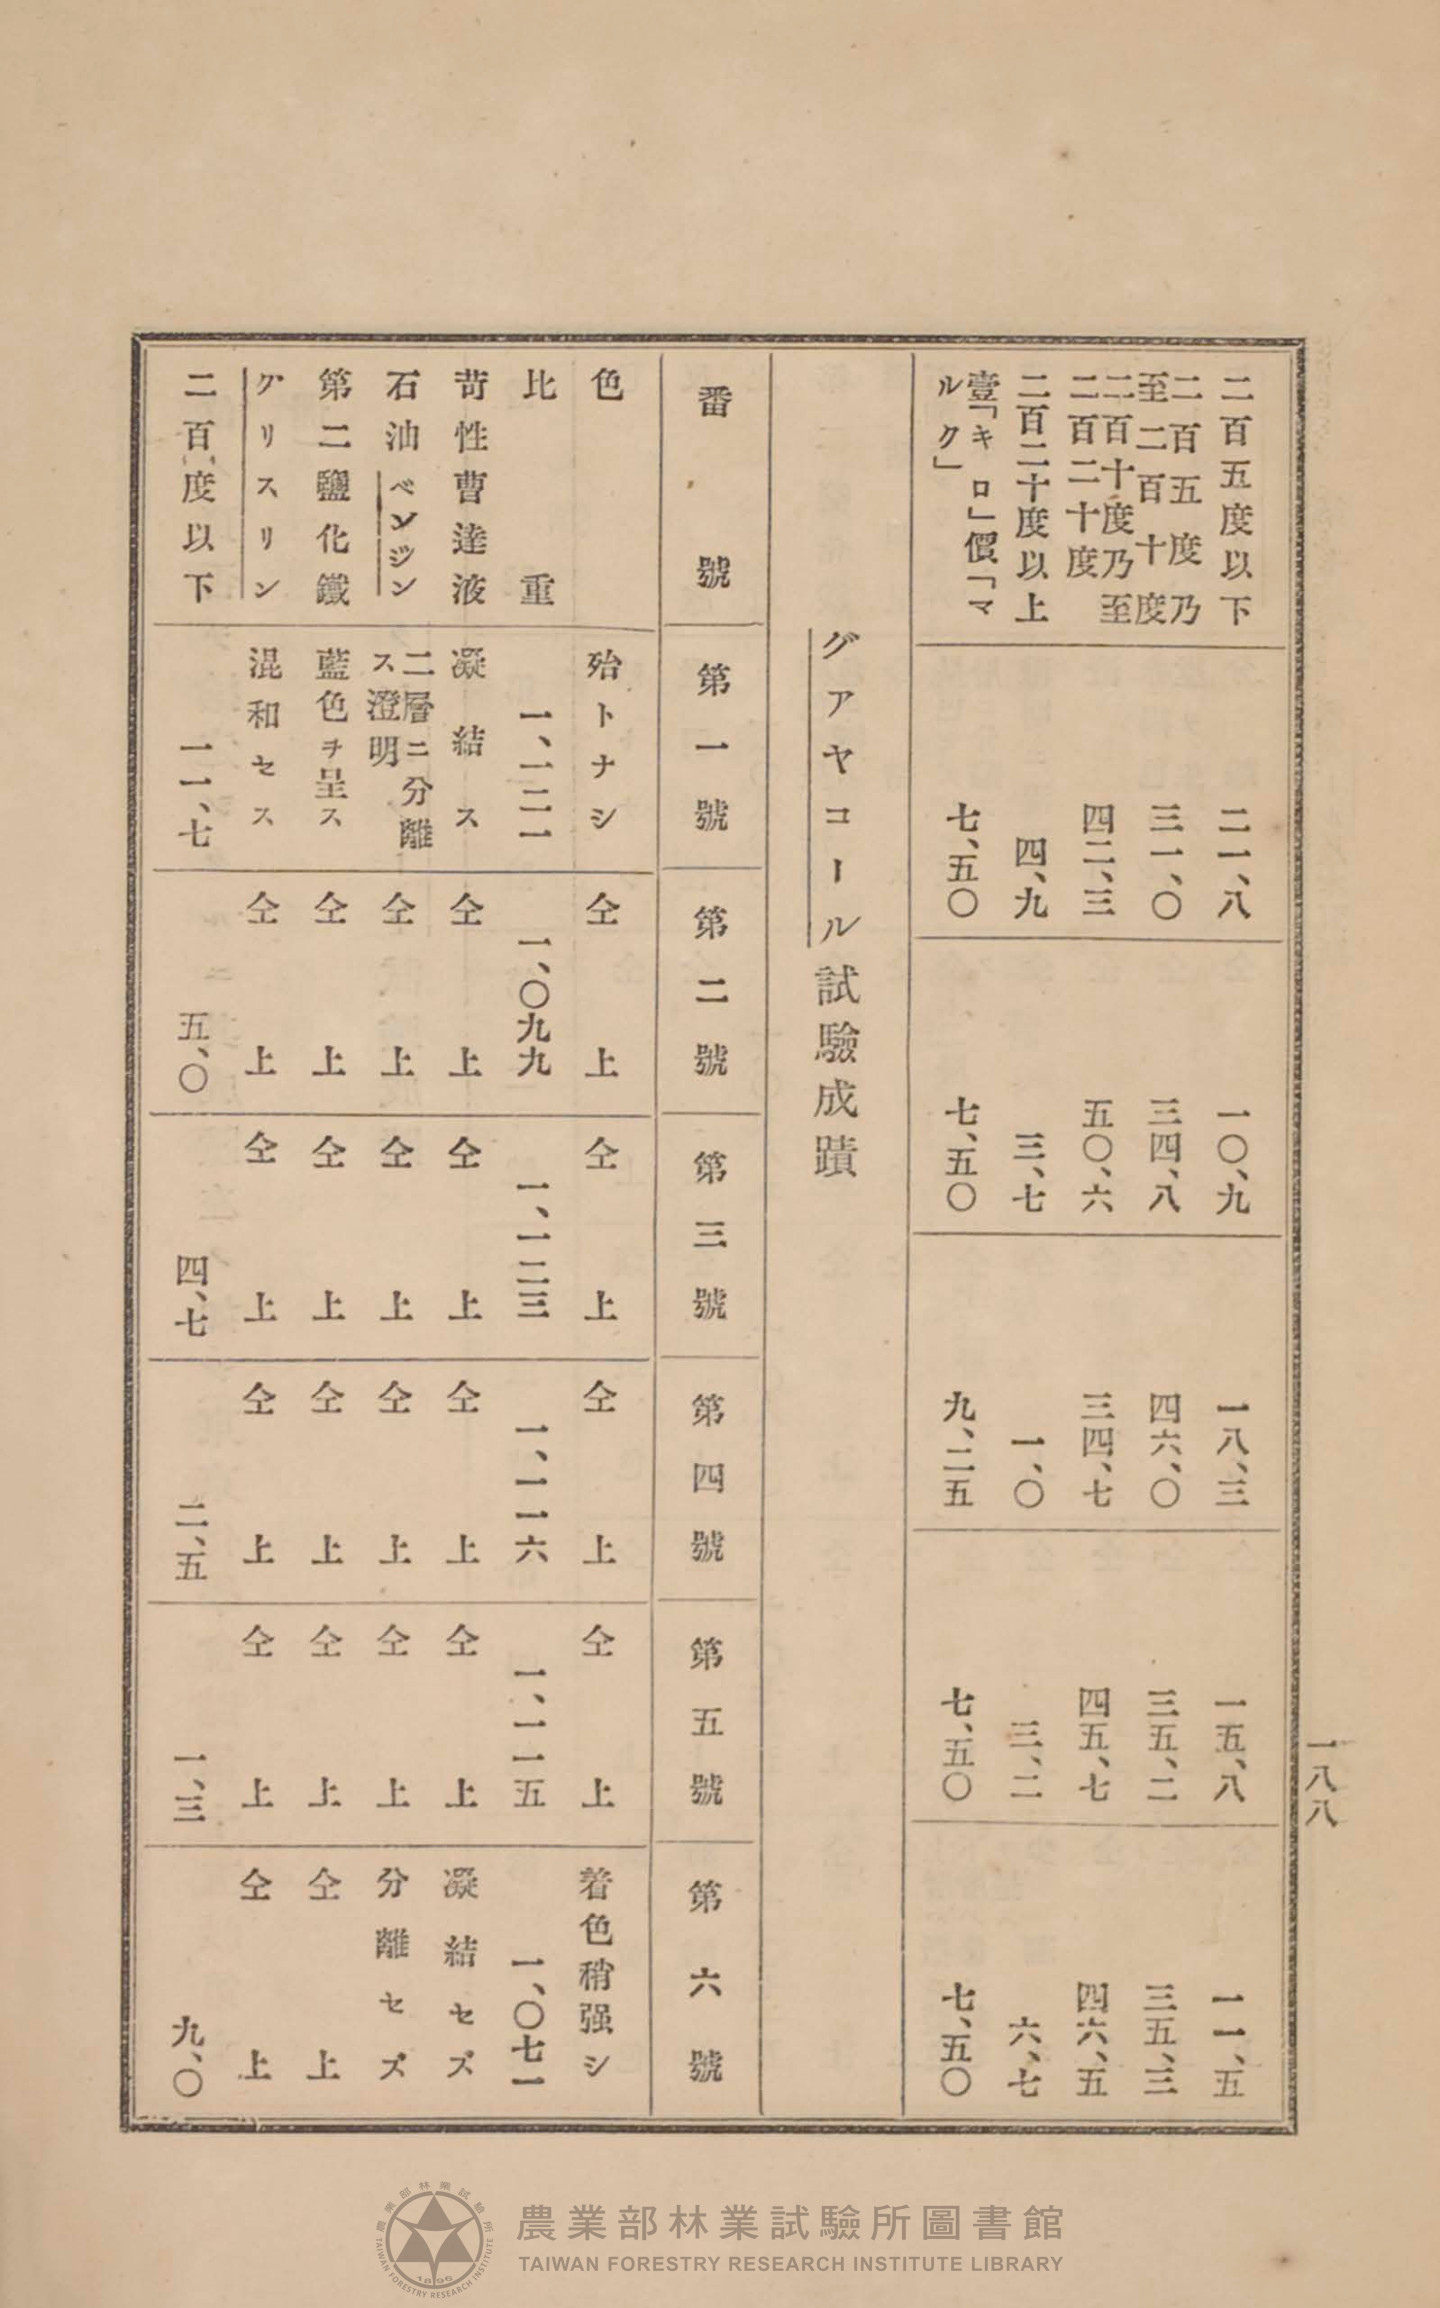 一八八
二百五度以下 二一、八 一〇、九 一八、三 一五、八 一一、五
二百五度乃至二百十度 三一、〇 三四、八 四六、〇 三五、二 三五、三
二百十度乃至二百二十度 四二、三 五〇、六 三四、七 四五、七 四六、五
二百二十度以上 四、九 三、七 一、〇 三、二 六、七
壹「キロ」價「マルク」 七、五〇 七、五〇 九、二五 七、五〇 七、五〇
グアヤコール試驗成蹟
番號 第一號 第二號 第三號 第四號 第五號 第六號
色 殆トナシ 仝上 仝上 仝上 仝上 着色稍强シ
比重 一、一二一 一、〇九九 一、一二三 一、一一六 一、一一五 一、〇七一
苛性曹達液 凝結ス 仝上 仝上 仝上 仝上 凝結セズ
石油ベンジン 二層ニ分離ス澄明 仝上 仝上 仝上 仝上 分離セズ
第二鹽化鐵 藍色ヲ呈ス 仝上 仝上 仝上 仝上 仝上
グリスリン 混和セス 仝上 仝上 仝上 仝上 仝上
二百度以下 一一、七 五、〇 四、七 二、五 一、三 九、〇
農業部林業試驗所圖書館
TAIWAN FORESTRY RESEARCH INSTITUTE LIBRARY
農業部林業試驗所
TAIWAN FORESTRY RESEARCH INSTITUTE
1896